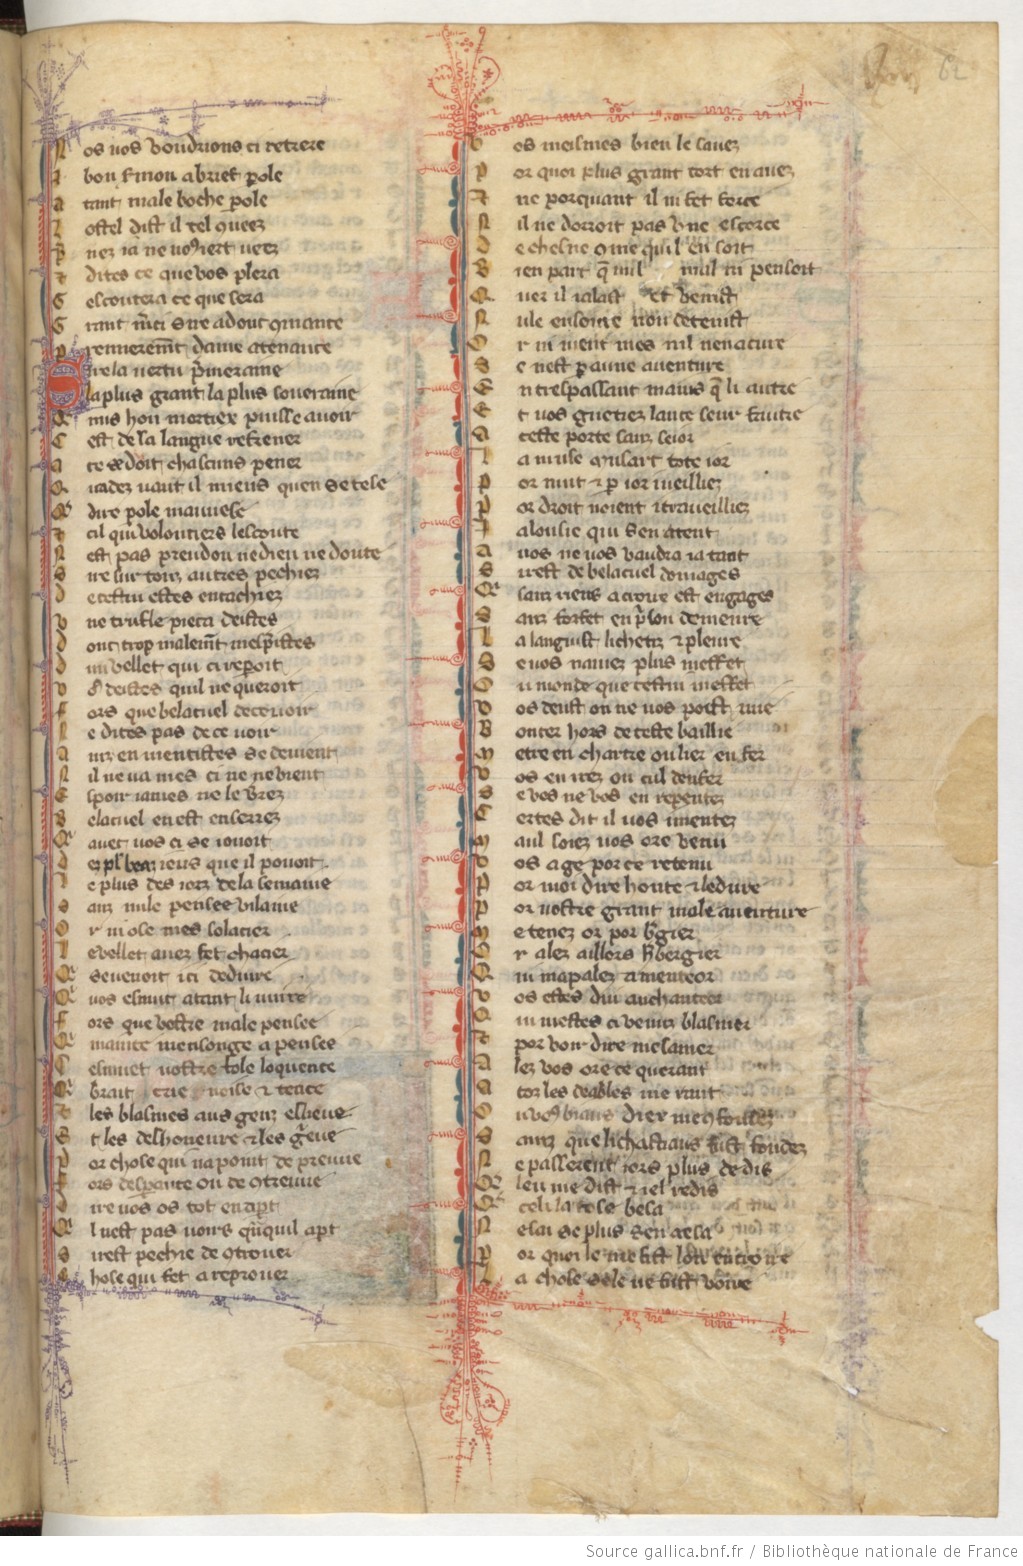 N os vos voudrions ci retrere
j bon sermon a brief parole
a tant male boche parole
L ostel dist il tel queez
P nez ia ne vos iert veez
t dites ce que vos plera
G escoutera ce que sera
G rant merci sire a dont qmance
p remierement dame atenance
S ire la vertu primeraine
la plus grant la plus soueraine
Q mis hon mortiex puisse auoir
C est de sa langue refrener
a ce se doit chascuns pener
Q uadez vaut il mieus quen se tese
Q dire parole mauuese
t cil qui volontiers lescoute
N est pas preudon ne dieu ne doute
S ire sur touz autres pechiez
d e cestui estes entachiez
v ne trufle pieca deistes
d ont trop malement mespristes
d un vellet qui ci reperoit
v os deistes quil ne queroit
f ors que belacuel deceuoir
n e dites pas de ce voir
a inz en mentistes se deuient
N il ne va mes ci ne ne vient
E spoir iames ne le verez
B elacuel en est enserrez
Q auec vos ci se iouoit
d es plus beaz ieus que il pouoit
l e plus des iorz de la semaine
s anz nule pensee vilaine
O r ni ose mes solacier
l e vellet auez fet chacier
Q se venoit ici deduire
Q vos esmut a tant li nuire
f ors que vostre male pensee
Q mainte mensonge a pensee
C esmuet vostre fole loquence
Q brait crie noise et tence
t les blasmes aus genz esleue
E t les deshoneure et les greue
p or chose qui na point de preuue
f ors desparence ou de controuue
d ire vos os tot en apert
Q l nest pas voirs quanquil apert
s irest pechie de controuer
C hose qui fet a reprouer
v os meismes bien le sauez
p or quoi plus grant tort en auez
t ne porquant il ni fet force
N il ne dorroit pas vne escorce
d e chesne comme quil en soit
B ien part que nul mal ni pensoit
Q uer il i alast et venist
N ule ensoine non detenist
O r ni vient mes nil nen a cure
S e nest par aune auenture
E n trespassant mains que li autre
E t vos guetiez lance seur fautre
a ceste porte sanz seior
l a muse musart tote ior
p or nuit et par ior veilliez
p or droit noient i traueilliez
J alousie qui sen atent
a vos ne vos vaudra ia tant
s irest de belacuel domages
Q sanz riens acroire est en gages
S anz forfet en prison demeure
l a languist li chetiz et pleure
S e vos nauiez plus meffet
O u monde que cestui meffet
v os deust on ne vos poist mie
B outer hors de ceste baillie
m etre en chartre ou lier en fer
v os en irez ou cul denfer
s e vos ne vos en repentez
C ertes dit il vos i mentez
m aul soiez vos ore venu
v os a ge por ce retenu
p or moi dire honte et ledure
p or vostre grant male auenture
m e tenez or por bergier
O r alez aillors herbergier
Q ui mapalez a menteor
v os estes dui anchanteor
Q ui mestes ci venuz blasmer
t por voir dire mesamer
A lez vos ore ce querant
a toz les deables me rant
O u vos biaus diex me confondez
S ainz que li chastiaus fust fondez
N e passerent iors plus de dis
Q len me dist et iel redis
Q cell la rose besa
N e sai se plus sen aesa
P or quoi le me fist lon encroire
l a chose sele ne fust voire
62
Source gallica.bnf.fr / Bibliothèque nationale de France